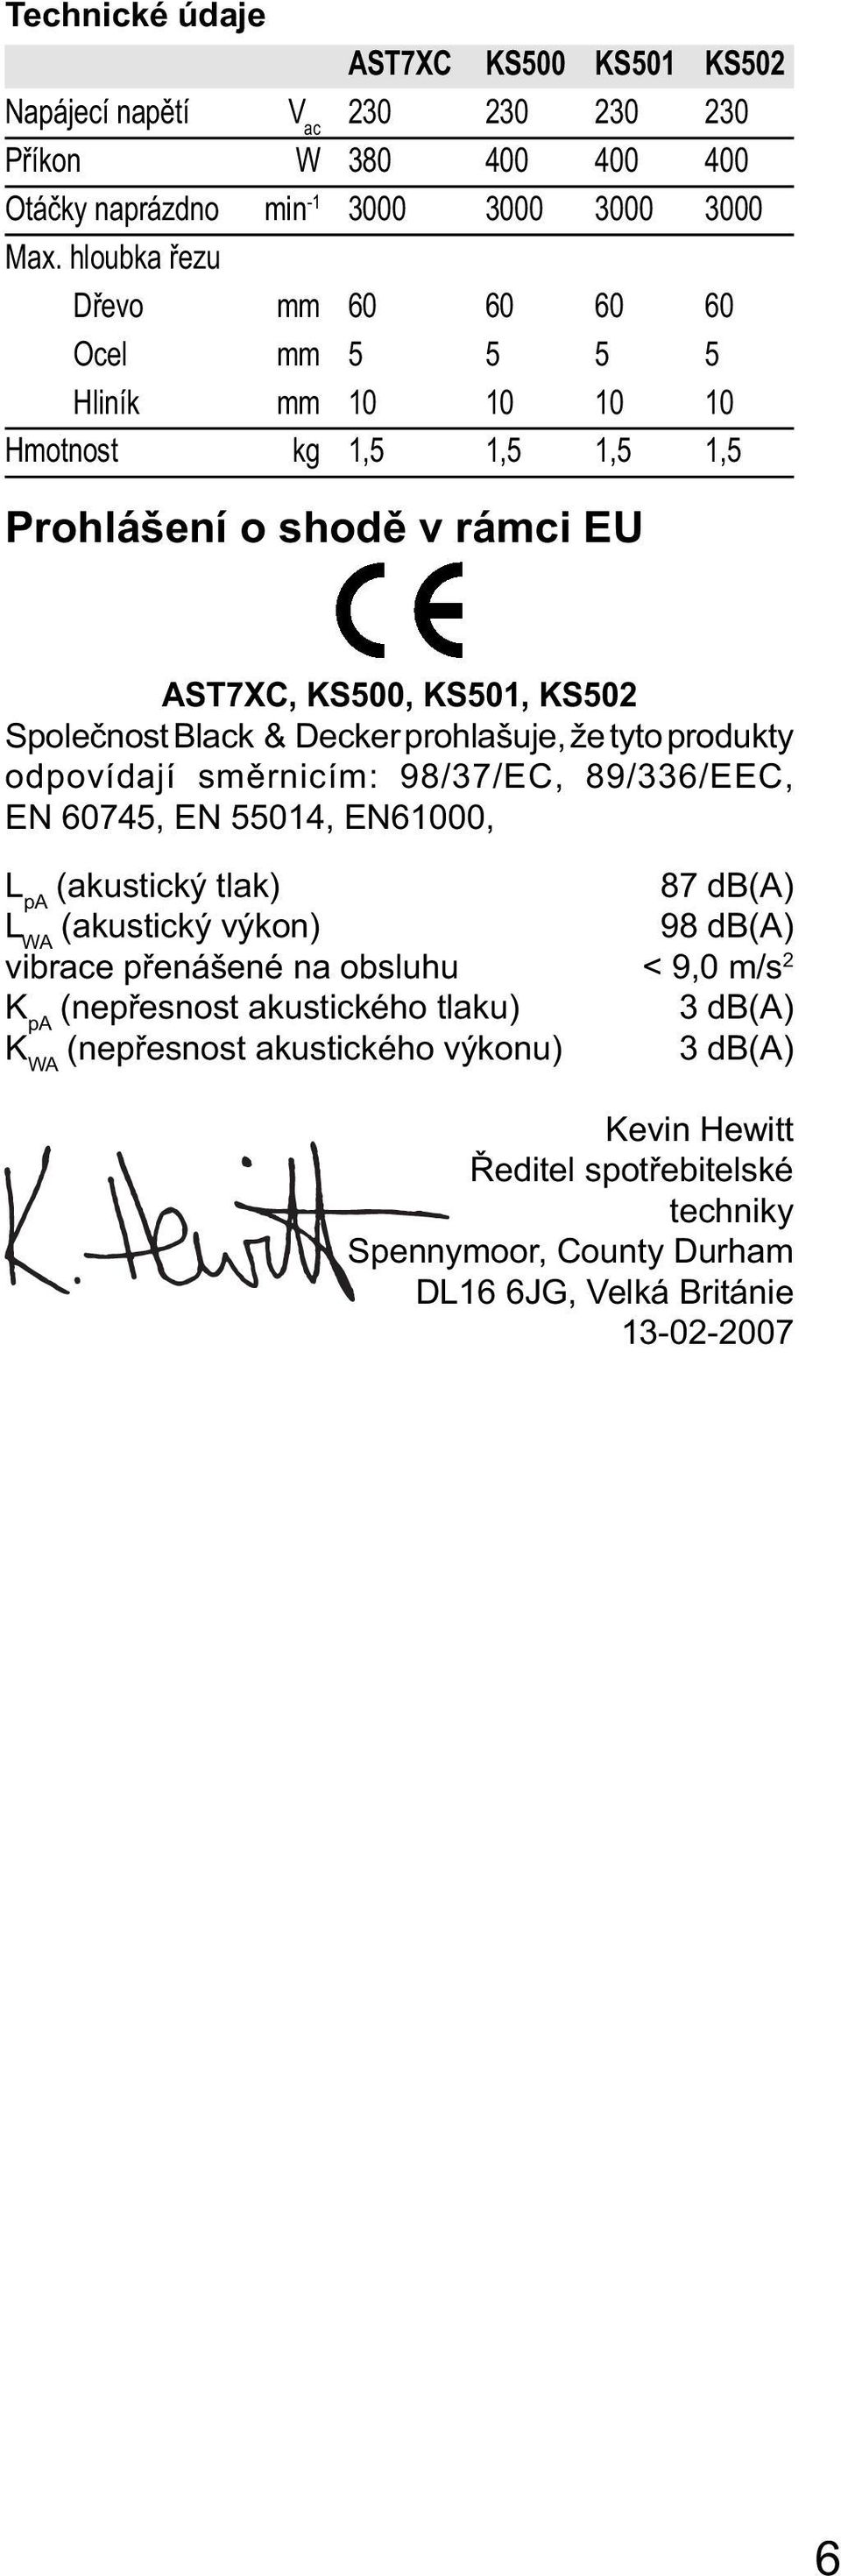 Technické údaje
AST7XC KS500 KS501 KS502
Napájecí napětí Vac 230 230 230 230
Příkon W 380 400 400 400
Otáčky naprázdno min-1 3000 3000 3000 3000
Max. hloubka řezu
Dřevo mm 60 60 60 60
Ocel mm 5 5 5 5
Hliník mm 10 10 10 10
Hmotnost kg 1,5 1,5 1,5 1,5
Prohlášení o shodě v rámci EU
CE
AST7XC, KS500, KS501, KS502
Společnost Black & Decker prohlašuje, že tyto produkty
odpovídají směrnicím: 98/37/EC, 89/336/EEC,
EN 60745, EN 55014, EN61000,
LpA (akustický tlak) 87 dB(A)
LWA (akustický výkon) 98 dB(A)
vibrace přenášené na obsluhu < 9,0 m/s2
KpA (nepřesnost akustického tlaku) 3 dB(A)
KWA (nepřesnost akustického výkonu) 3 dB(A)
K. Hewitt
Kevin Hewitt
Ředitel spotřebitelské
techniky
Spennymoor, County Durham
DL16 6JG, Velká Británie
13-02-2007
6